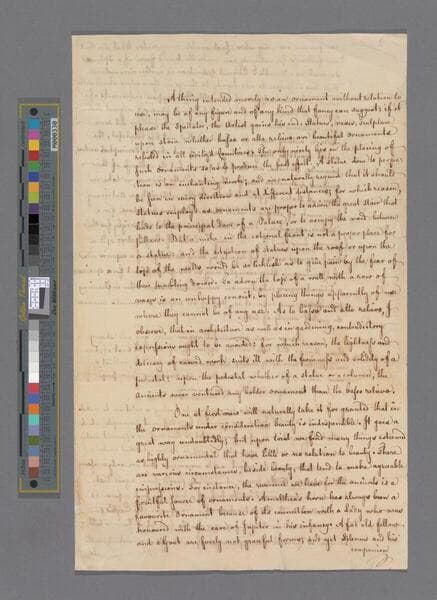 A thing intended merely as an ornament without relation to
use, may be of any figure and of any kind that fancy can suggest: if it
please the Spectator, the Artist gains his end. Statues, vases, sculpture
upon stone whether basso or alto relievo, are beautiful ornaments
relished in all civilized Countries. The only nicety lies in the placing of
such ornaments so as to produce the best effect. A statue done to perfec-
tion is an enchanting work; and we naturally require that it should
be seen in every direction and at different distances; for which reason,
statues employ'd as ornaments are proper to adorn the great stair that
leads to the principal door of a Palace, or to occupy the void between
pillars. But a niche in the external front is not a proper place for
a statue: and the situation of statues upon the roof or upon the
top of the walls would be so ticklish as to give pain by the fear of
their tumbling down. To adorn the top of a wall with a row of
vases is an unhappy conceit, by placing things apparently of use
where they cannot be of any use. As to basso and alto relievo, I
observe, that in architecture as well as in gardening, contradictory
expressions ought to be avoided: for which reason, the lightness and
delicacy of carved work suits ill with the firmness and solidity of a
pedestal: upon the pedestal whether of a statue or a column, the
ancients never ventured any bolder ornament than the basso relievo.
One at first view will naturally take it for granted that in
the ornaments under consideration beauty is indispensible. It goes a
great way undoubtedly; but upon trial we find many things esteemed
as highly ornamental that have little or no relation to beauty. There
are various circumstances, beside beauty, that tend to make agreeable
impressions. For instance, the reverence we have for the ancients is a
fruitful source of ornaments. Amalthea's horn has always been a
favourite Ornament because of its connection with a Lady who was
honoured with the care of Jupiter in his infancy. A fat old fellow
and a Goat are surely not graceful forms; and yet Silenus and his
companions